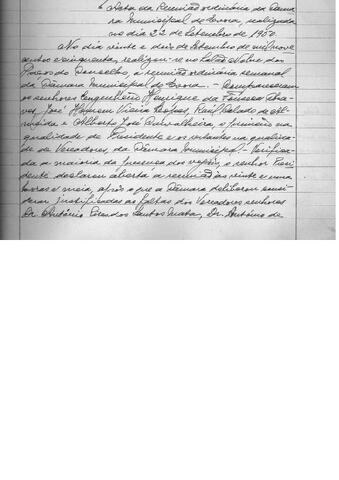 Acta da Reunião ordinária da Câma-
ra Municipal de Évora, realizada
no dia 22 de Setembro de 1950.
No dia vinte e dois de Setembro de mil nove
centos e cinquenta, realizou-se no Salão Nobre dos
Paços do Concelho, a reunião ordinária semanal
da Câmara Municipal de Évora. - Compareceram
os senhores Engenheiro Henrique da Fonseca Cha-
ves, José Homem Vieira
meida e Alberto José, o primeiro na
qualidade de Presidente e os restantes na qualida-
de de Vereadores, da Câmara Municipal. - Verifica-
da a maioria da presença dos vogais, o senhor Presi
dente declarou aberta a reunião às vinte e uma
horas e meia, após o que a Câmara deliberou consi-
derar justificadas as faltas dos Vereadores senhores
Dr. António dos Santos Mata, Dr. António de